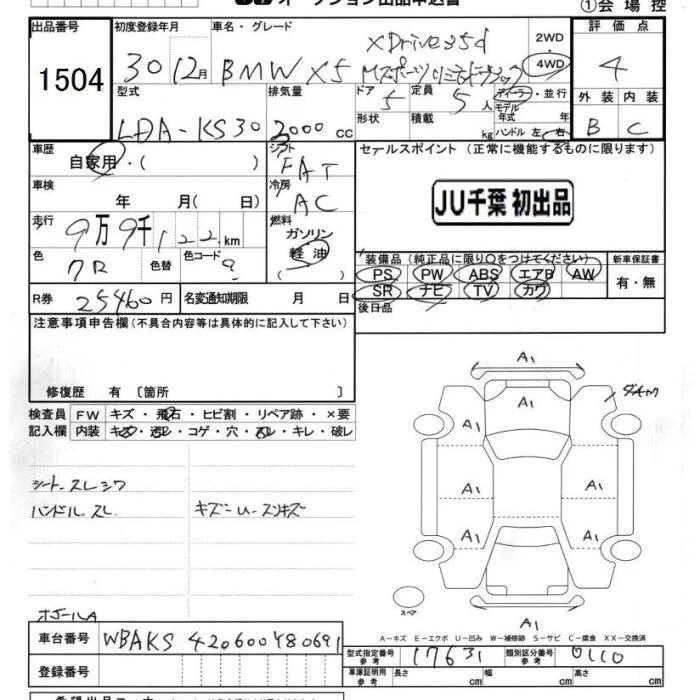 ①会場控
出品番号 初度登録年月 車名・グレード 評価点
1504
30 12月 BMW X5
xDrive35d
2WD
4WD
4
型式 排気量 ドア 定員 ディーラー・並行
5 5人 モデル
年式 年
外装 内装
LDA-KS30 3000cc 形状 積載 kg ハンドル 左・右
B C
車歴 シフト セールスポイント (正常に機能するものに限ります)
自家用・( )
FAT
JU千葉 初出品
車検 冷房
年 月( 日)
AC
走行 燃料
9万9千122km
ガソリン
軽油
( )
色 色替 色コード
装備品 (純正品に限り○をつけてください) 新車保証書
PS PW ABS エアB AW
有・無
SR ナビ TV カワ
R券 25460円 名変通知期限 月 日
後日品
注意事項申告欄(不具合内容等は具体的に記入して下さい)
修復歴 有 〔箇所 〕
検査員 FW キズ・飛石・ヒビ割・リペア跡・×要
記入欄 内装 キズ・汚レ・コゲ・穴・スレ・キレ・破レ
シート スレ シワ
ハンドル スレ
キズ-U-スリキズ
A1
A1
A1
A1 A1
A1
A1
A1
A1
スペア
A-キズ E-エクボ U-凹み W-補修跡 S-サビ C-腐食 XX-交換済
車台番号 WBAKS420600Y80691
型式指定番号 参考 17631 類別区分番号 参考 0110
登録番号
車庫証明用 参考 長さ cm 幅 cm 高さ cm